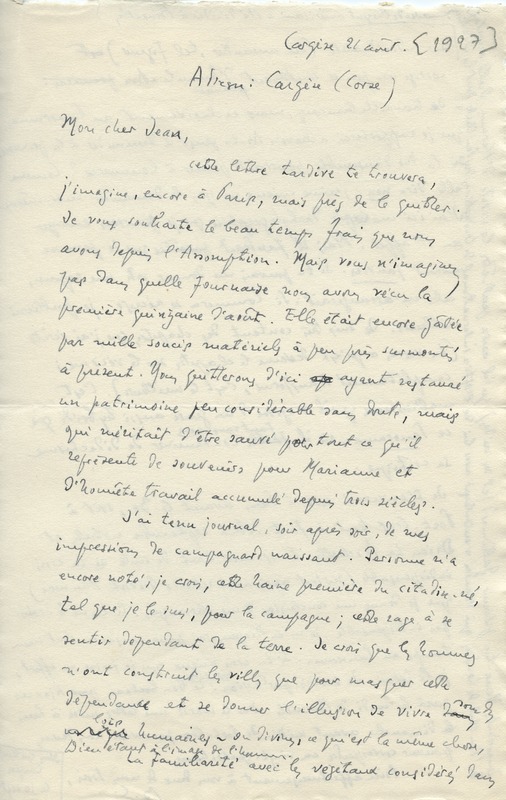 Cargèse 21 août. [1927]
Adresse : Cargèse (Corse)
Mon cher Jean,
cette lettre tardive te trouvera,
j'imagine, encore à Paris, mais près de le quitter.
Je vous souhaite le beau temps frais que nous
avons depuis l'Assomption. Mais vous n'imaginez
pas dans quelle fournaise nous avons vécu la
première quinzaine d'août. Elle était encore gâtée
par mille soucis matériels à peu près surmontés
à présent. Nous quitterons d'ici ayant restauré
un patrimoine peu considérable sans doute, mais
qui méritait d'être sauvé pour tout ce qu'il
représente de souvenirs pour Marianne et
d'honnête travail accumulé depuis trois siècles.
J'ai tenu journal, soir après soir, de mes
impressions de campagnard naissant. Personne n'a
encore noté, je crois, cette haine première du citadin-né,
tel que je le suis, pour la campagne ; cette rage à se
sentir dépendant de la terre. Je crois que les hommes
n'ont construit les villes que pour masquer cette
dépendance et se donner l'illusion de vivre sous des
lois humaines – ou divines, ce qui est la même chose,
Dieu étant à l'image de l'homme.
La familiarité avec les végétaux considérés dans